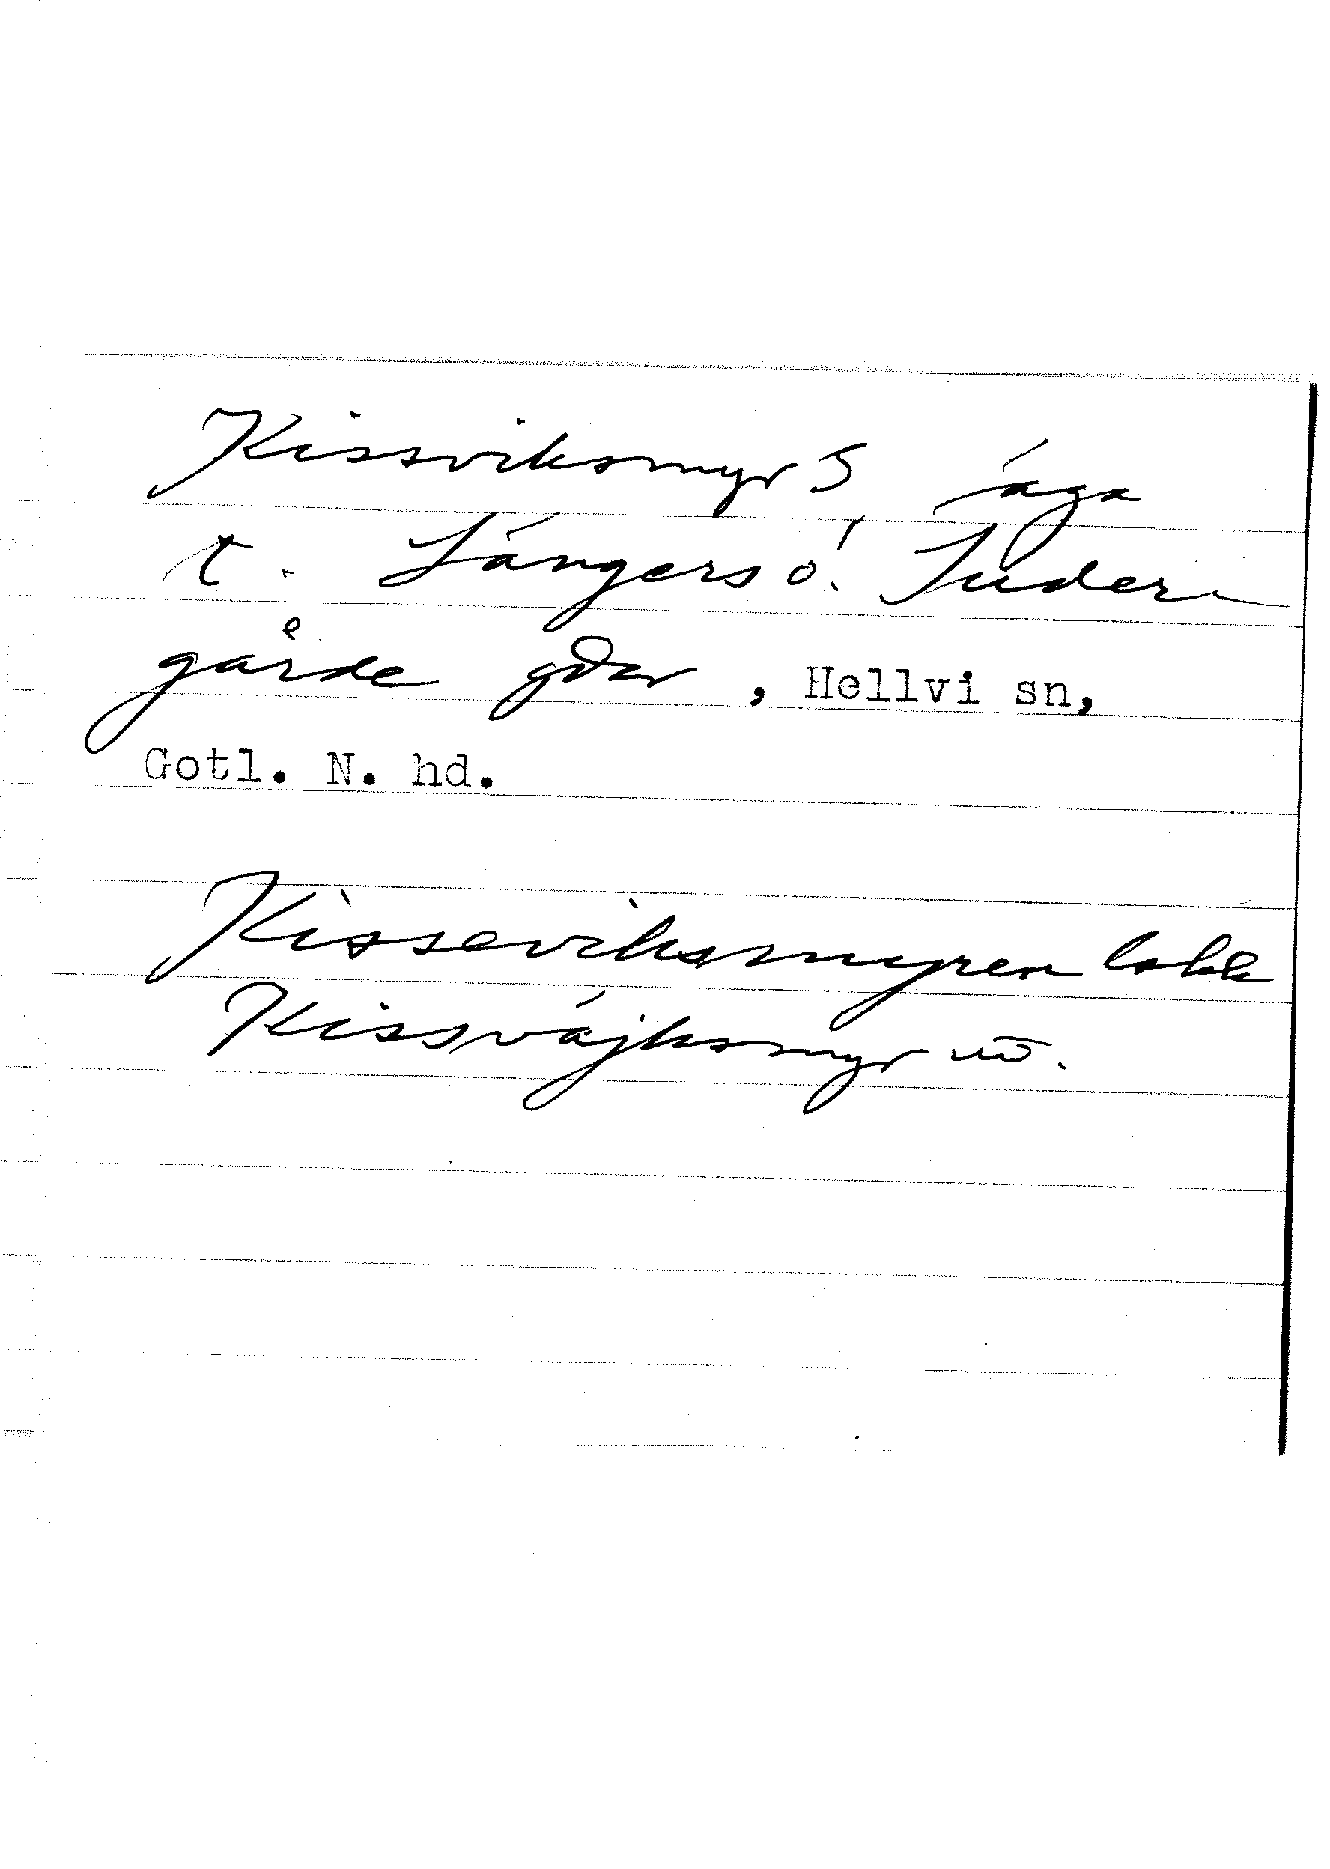 Kissviksmyr S äga
t. Längers o. Suder-
gårde gdar, Hellvi sn,
Gotl. N. hd.
Kisseviksmyren lokk
Kissväjksmyr utt.